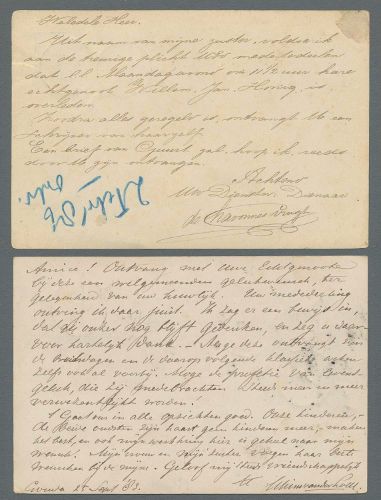 Weledele Heer.
Uit naam van mijne zuster, voldoe ik
aan de treurige plicht U mede te deelen
dat ll. Maandagavond om 11 1/2 uur hare
echtgenoot Willem Jan is
overleden.
Zoodra alles geregeld is, ontvangt U een
schrijven van haarzelf.
Een brief van Cuvent zal, hoop ik, reeds
door U zijn ontvangen.
Achtend
Uw Dienstw. Dienaar
de
Amice! Ontvang met Uwe Echtgenoote
bij deze een welgemeenden gelukwensch, ter
gelegenheid van uw huwelijk. Uw mededeeling
ontving ik daar juist. Ik zag er een bewijs in,
dat gij onzer nog blijft gedenken, en zeg u daar-
voor hartelijk dank. - Moge deze ontvangst van
de en de daarop volgende
zelfs ook al voorbij. Moge de profetie van
geluk, die zij medebrachten steeds meer en meer
verwezenlijkt worden!
't Gaat ons in alle opzichten goed. Onze kinderen,
de beide oudsten zijn haast geen kinderen meer, maken
het best, en ook mijn werkkring hier is geheel naar mijn
wensch. Mijn vrouw en mijn zuster voegen haar beste
wenschen bij de mijne. Geloof mij steeds vriendschappelijk
t.t.
Sept. 83.